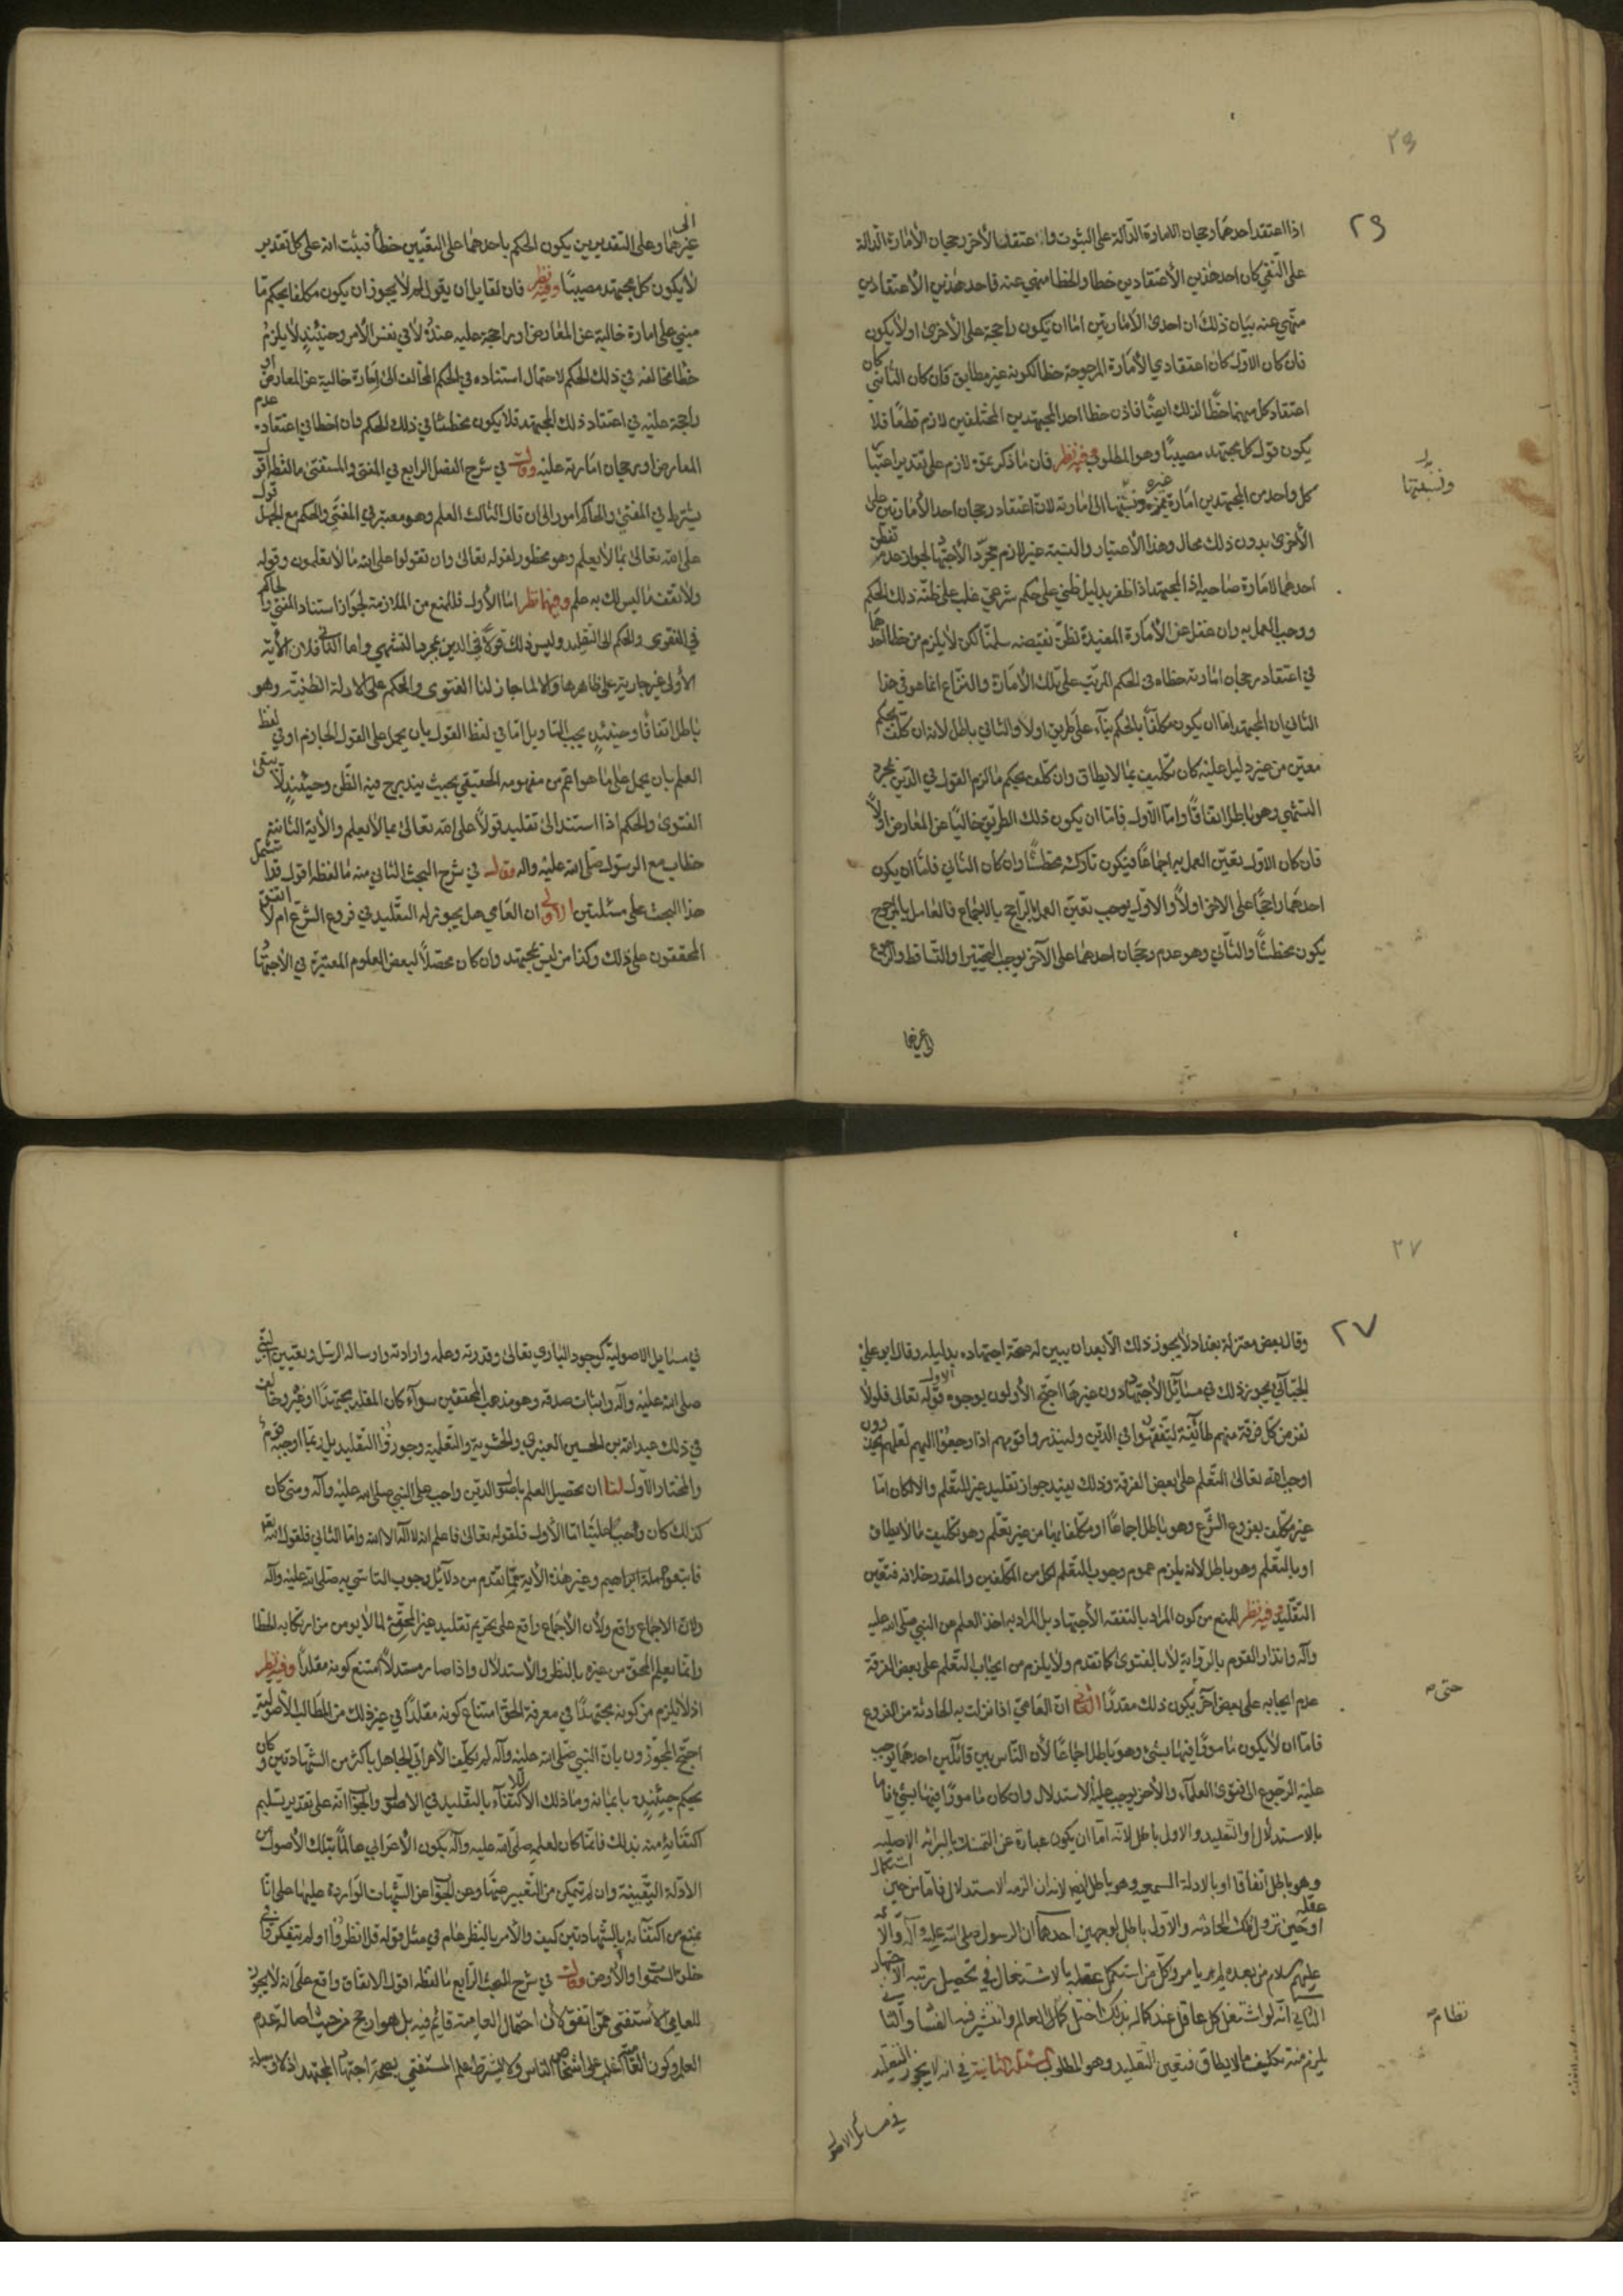 ٢٦
٢٦
اذا اعتقد احدهما رجحان الامارة الدالة على الثبوت واعتقد الآخر رجحان الأمارة الدالة
على النفي كان احد هذين الاعتقادين خطا والخطا منهي عنه فاحد هذين الاعتقادين
منهي عنه بيان ذلك ان احدى الأمارتين اما ان يكون راجحة على الأخرى اولا يكون
فان كان الاول كان اعتقاد ذي الأمارة المرجوحة خطا لكونه غير مطابق فان كان الثاني كان
اعتقاد كل منهما خطًا لذلك ايضًا فاذن خطا احد المجتهدين المختلفين لازم قطعًا فلا
يكون قول كل مجتهد مصيبًا وهو المطلوب وفيه نظر فان ما ذكر عنه لازم على تقدير
كل واحد من المجتهدين امارة غيره ونسبتها الى امارته لان اعتقاد رجحان احد الأمارتين على
ونسبتها
الأخرى بدون ذلك محال وهذا الاعتبار والنسبة غير لازم مجرد الاجتهاد لجواز عدم تفطن
احدهما لامارة صاحبه اذ المجتهد اذا ظفر بدليل ظني على حكم شرعي غلب على ظنه ذلك الحكم
ووجب العمل به وان غفل عن الأمارة المفيدة لظن نقيضه سلمنا لكن لا يلزم من خطا احدهما
في اعتقاد رجحان امارته خطاه في الحكم المرتب على تلك الأمارة والنزاع انما هو في هذا
الثاني ان المجتهد اما ان يكون مكلفًا بالحكم بناء على طريق اولا والثاني باطل لانه ان كلف بحكم
معين من غير دليل عليه كان تكليف بما لا يطاق وان كلف بحكم ما لزم القول في الدين بمجرد
التشهي وهو باطل اتفاقًا واما الاول فاما ان يكون ذلك الطريق خاليًا عن المعارض اولا
فان كان الاول تعين العمل به اجماعًا فيكون تاركه مخطئًا وان كان الثاني فاما ان يكون
احدهما راجحًا على الآخر اولًا والاول يوجب تعين العمل بالراجح بالاجماع فالعامل بالمرجوح
يكون مخطئًا والثاني وهو عدم رجحان احدهما على الآخر يوجب التخيير او التساقط والرجوع
الى غيرهما
الى
غيرهما وعلى التقديرين يكون الحكم باحدهما على التعيين خطأ فثبت انه على كل تقدير
لا يكون كل مجتهد مصيبًا وفيه نظر فان لقايل ان يقول لم لا يجوز ان يكون مكلفا بحكم ما
مبني على امارة خالية عن المعارض او راجحة عليه عنده لا في نفس الامر وحينئذ لا يلزم
خطا مخالفه في ذلك الحكم لاحتمال استناده في الحكم المخالف الى امارة خالية عن المعارض او
راجحة عليه في اعتقاد ذلك المجتهد فلا يكون مخطئًا في ذلك الحكم وان اخطا في اعتقاد عدم
المعارض او رجحان امارته عليه وقال في شرح الفصل الرابع في المفتي والمستفتي ما لفظه اقول
يشترط في المفتي والحاكم امور الى ان قال الثالث العلم وهو معتبر في المفتي والحكم مع الجهل قول
على الله تعالى بما لا يعلم وهو محظور لقوله تعالى وان تقولوا على الله ما لا تعلمون وقوله
ولا تقف ما ليس لك به علم وفيهما نظر اما الأول فللمنع من الملازمة لجواز استناد المفتي والحاكم
في الفتوى والحكم الى التقليد وليس ذلك قولًا في الدين بمجرد التشهي واما الثاني فلان الآية
الأولى غير جارية على ظاهرها والا لما جاز لنا الفتوى والحكم على الادلة الظنية وهو
باطل اتفاقًا وحينئذ يجب التاويل اما في لفظ القول بان يحمل على القول الجازم او في لفظ
العلم بان يحمل على ما هو اعم من مفهومه الحقيقي بحيث يندرج فيه الظن وحينئذ لا يبقى
الفتوى والحكم اذا استند الى تقليد قولًا على الله تعالى بما لا يعلم والآية الثانية
خطاب مع الرسول صلى الله عليه واله وقال في شرح البحث الثاني منه ما لفظه اقول قد اشتمل
هذا البحث على مسئلتين الأولى ان العامي هل يجوز له التقليد في فروع الشرع ام لا اتفق
المحققون على ذلك وكذا من ليس بمجتهد وان كان محصلًا لبعض العلوم المعتبرة في الاجتهاد
٢٧
٢٧
وقال بعض معتزلة بغداد لا يجوز ذلك الا بعد ان يبين له صحة اجتهاده بدليله وقال ابو علي
الجبائي يجوز ذلك في مسائل الاجتهاد دون غيرها احتج الأولون بوجوه الاول قوله تعالى فلولا
نفر من كل فرقة منهم طائفة ليتفقهوا في الدين ولينذروا قومهم اذا رجعوا اليهم لعلهم يحذرون
اوجب الله تعالى التعلم على بعض الفرقة وذلك يفيد جواز تقليد غير المتعلم والا لكان اما
غير مكلف بفروع الشرع وهو باطل اجماعًا او مكلفا بها من غير تعلم وهو تكليف ما لا يطاق
او بالتعلم وهو باطل لانه يلزم عموم وجوب التعلم لكل من المكلفين والمقدر خلافه فتعين
التقليد وفيه نظر للمنع من كون المراد بالتفقه الاجتهاد بل المراد به اخذ العلم من النبي صلى الله عليه
وآله وانذار القوم بالرواية لا بالفتوى كما تقدم ولا يلزم من ايجاب التعلم على بعض الفرقة
عدم ايجابه على بعض آخر يكون ذلك مقلدًا الثاني ان العامي اذا نزلت به الحادثة من الفروع
حتى
فاما ان لا يكون مامورًا فيها بشئ وهو باطل اجماعًا لأن الناس بين قائلين احدهما يوجب
عليه الرجوع الى فتوى العلماء والآخر يوجب عليه الاستدلال وان كان مامورًا فيها بشئ فاما
بالاستدلال او التقليد والاول باطل لانه اما ان يكون عبارة عن التمسك بالبرائة الاصلية
وهو باطل اتفاقا او بالادلة السمعيه وهو باطل ايضا لانه ان الزمه الاستدلال فاما من حين استكمال
عقله
او حين نزول تلك الحادثه والاول باطل لوجهين احدهما ان الرسول صلى الله عليه وآله والائمة
عليهم السلام من بعده لم يامروا كل من استكمل عقله بالاشتغال في تحصيل رتبه الاجتهاد
الثاني انه لو اشتغل كل عاقل عند كماله بذلك اختل العالم وانتشر فيه الفساد والثاني
نظام
يلزم منه تكليف ما لا يطاق فتعين التقليد وهو المطلوب المسئلة الثانية في انه لا يجوز التقليد
في مسائل الاصول
في مسايل الاصولية كوجود الباري تعالى وقدرته وعلمه وارادته وارساله الرسل وتعيين النبي
صلى الله عليه وآله واثبات صدقه وهو مذهب المحققين سواء كان المقلد مجتهدًا او غيره وخالف
في ذلك عبيد الله بن الحسين العنبري والحشوية والتعليمية وجوزوا التقليد بل ربما اوجبه قوم
والمختار الأول لنا ان تحصيل العلم باصول الدين واجب على النبي صلى الله عليه وآله ومتى كان
كذلك كان واجبًا علينا اما الأول فلقوله تعالى فاعلم انه لا اله الا الله واما الثاني فلقوله تعالى
فاتبعوا ملة ابراهيم وغير هذه الآية مما تقدم من دلائل وجوب التاسي به صلى الله عليه وآله
ولأن الاجماع واقع على تحريم تقليد غير المحق لما لا يومن من ارتكابه الخطا
وانما يعلم المحق من غيره بالنظر والاستدلال واذا صار مستدلًا امتنع كونه مقلدًا وفيه نظر
اذ لا يلزم من كونه مجتهدًا في معرفة المحق امتناع كونه مقلدًا في غير ذلك من المطالب الأصولية
احتج المجوزون بان النبي صلى الله عليه وآله لم يكلف الأعرابي الجاهل باكثر من الشهادتين وكان
يحكم حينئذ بايمانه وما ذلك الا لاكتفاء بالتقليد في الاصول والجواب انه على تقدير تسليم
اكتفائه منه بذلك فانما كان لعلمه صلى الله عليه وآله بكون الأعرابي عالمًا بتلك الأصول من
الادلة اليقينية وان لم يتمكن من التعبير عنها وعن الجواب عن الشبهات الواردة عليها على انا
نمنع من اكتفائه بالشهادتين كيف والأمر بالنظر عام في مثل قوله قل انظروا او لم يتفكروا في
خلق السموات والأرض وقال في شرح البحث الرابع ما لفظه اقول الاتفاق واقع على انه لا يجوز
للعامي الاستفتاء عمن اتفق لأن احتمال العامية قائم فيه بل هو ارجح من حيث اصالة عدم
العلم وكون العامية اغلب على اشخاص الناس ولا يشترط علم المستفتي بصحة اجتهاد المجتهد اذ لا وسيلة